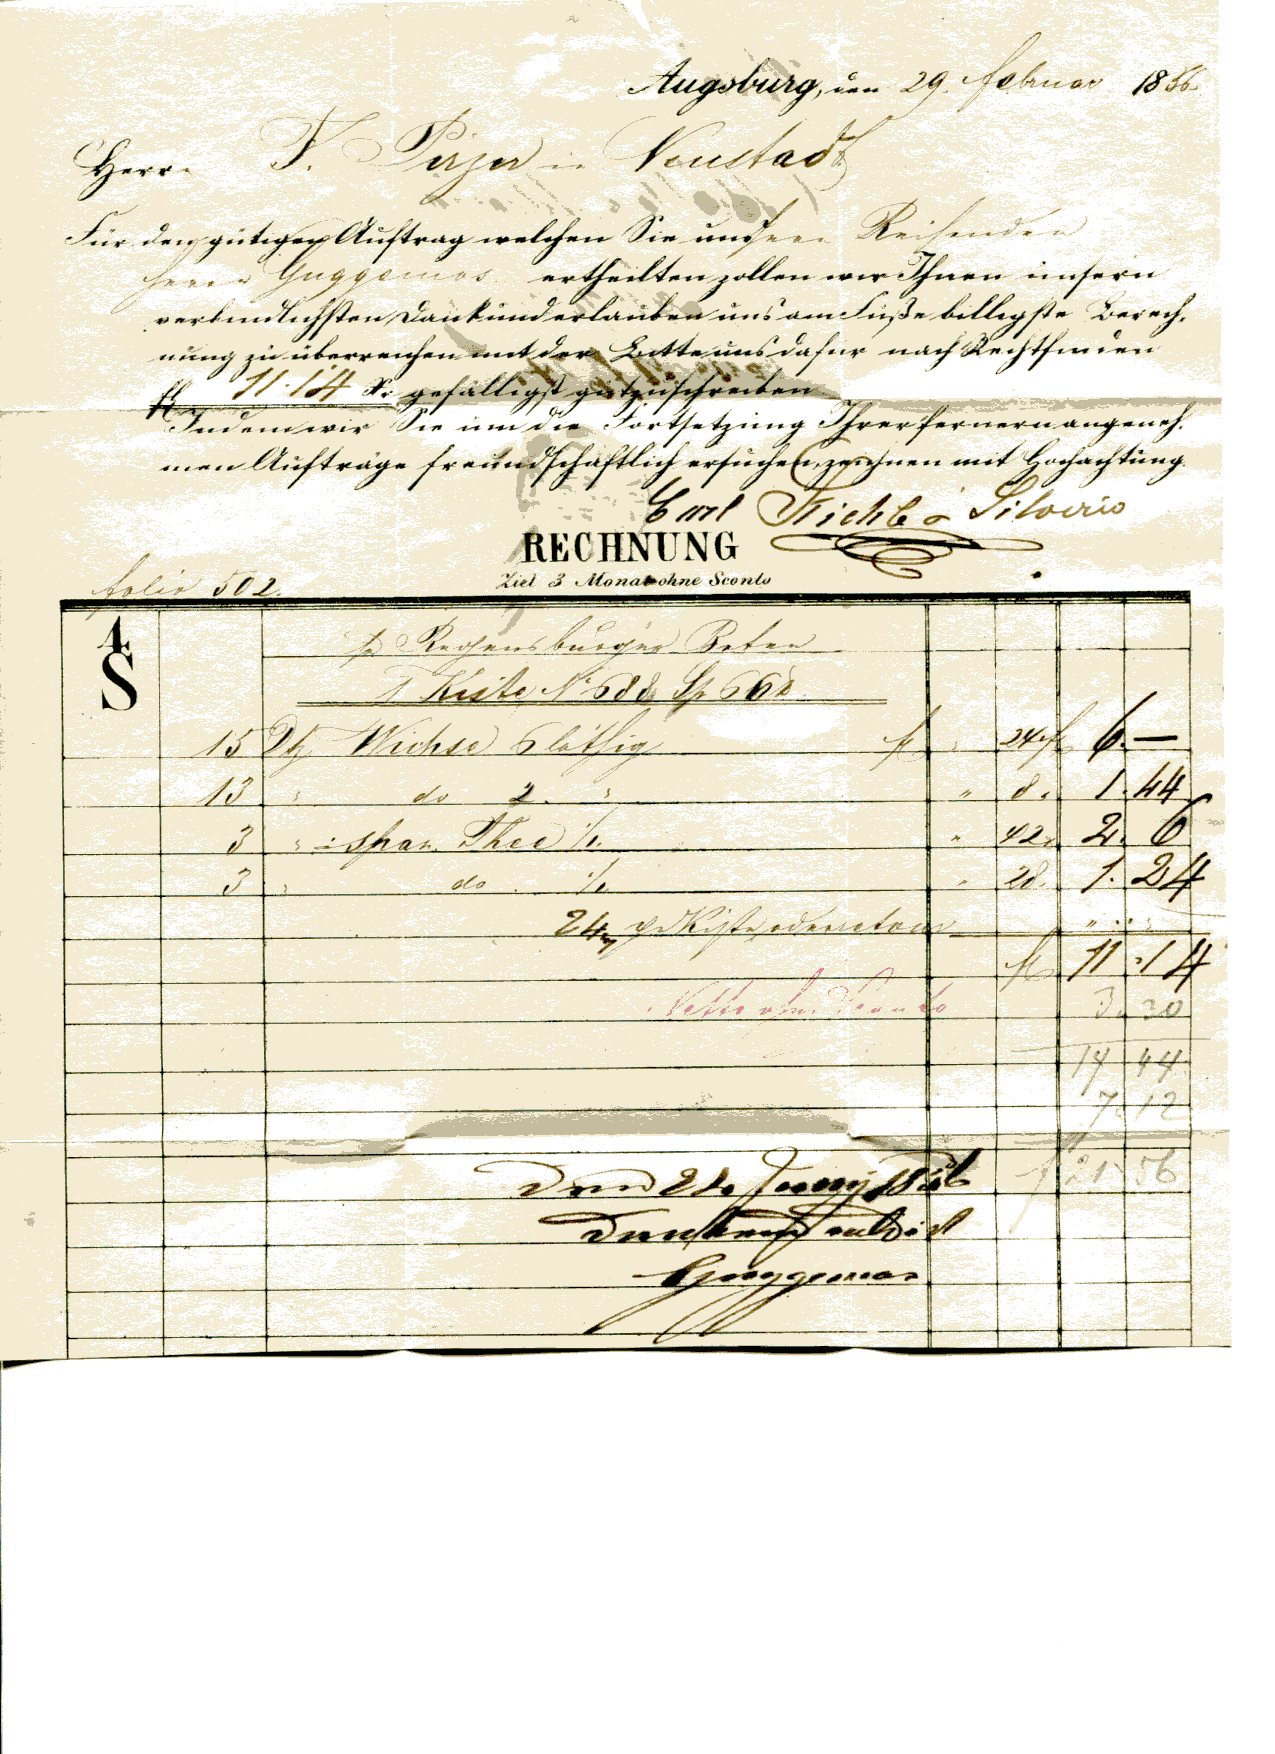 Augsburg, den 29. Februar 1856
Herrn F. Pirzer in Neustadt
Für den gütigen Auftrag welchen Sie unserm Reisenden
Herrn Guggomos ertheilten zollen wir Ihnen unsern
verbindlichsten Dank und erlauben uns am Fuße billigste Berech-
nung zu überreichen mit der Bitte uns dafür nach Rechtfinden
fl 11.14 Xr gefälligst gutzuschreiben
Indem wir Sie um die Fortsetzung Ihrer fernern angeneh-
men Aufträge freundschaftlich ersuchen, zeichnen mit Hochachtung
Carl & Silverio
RECHNUNG
Ziel 3 Monat ohne Sconto
folio 502.
4
S
pr Regensburger Boten
1 Kiste No 688
15 Dtz Wichse 6 löthig fl " 24 x 6. —
13 " do 2. " " 8. 1.44
3 " span. Thee " 42 2. 6
3 " do " 28. 1.24
24 pr Kiste oder retour " "
fl 11.14
Netto ohne Sconto
3 30
14 44
7 12
f 21 56
Den 28. Juny 1856
Dankend
Guggomos